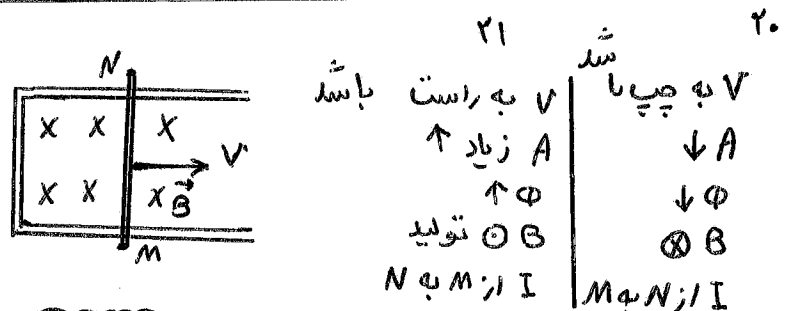 ۲۰
V به چپ باشد
A ↓
Φ ↓
B ⊗
I از N به M
۲۱
V به راست باشد
A زیاد ↑
Φ ↑
B ⊙ تولید
I از M به N
N
X X X
V
X X X B
M